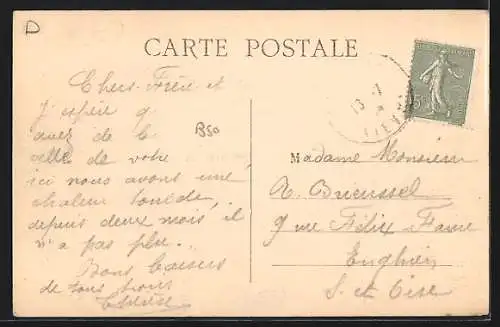 D
CARTE POSTALE
Chers Frère et
J'espère q
avez de la
celle de votre
ici nous avons une
chaleur
depuis deux mois, il
n'a pas plu..
Bons Baisers
de tous
B50
13 - 7
Madame Monsieur
A. Brieussel
9 rue Félix Faure
Enghien
S. et Oise